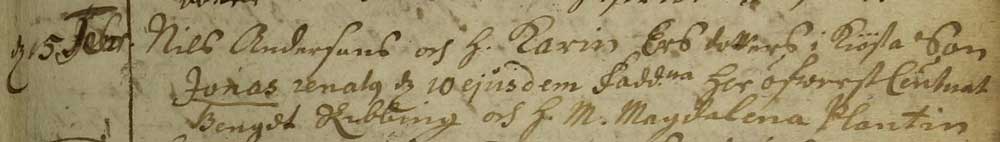 d. 15 Febr. Nils Andersons och h. Karin Ersdotters i Kiösta Son
Jonas renatq d. 10 ejusdem Fadd.na Her öfwerst Leütnat
Bengdt Ribbing och h. M. Magdalena Plantin